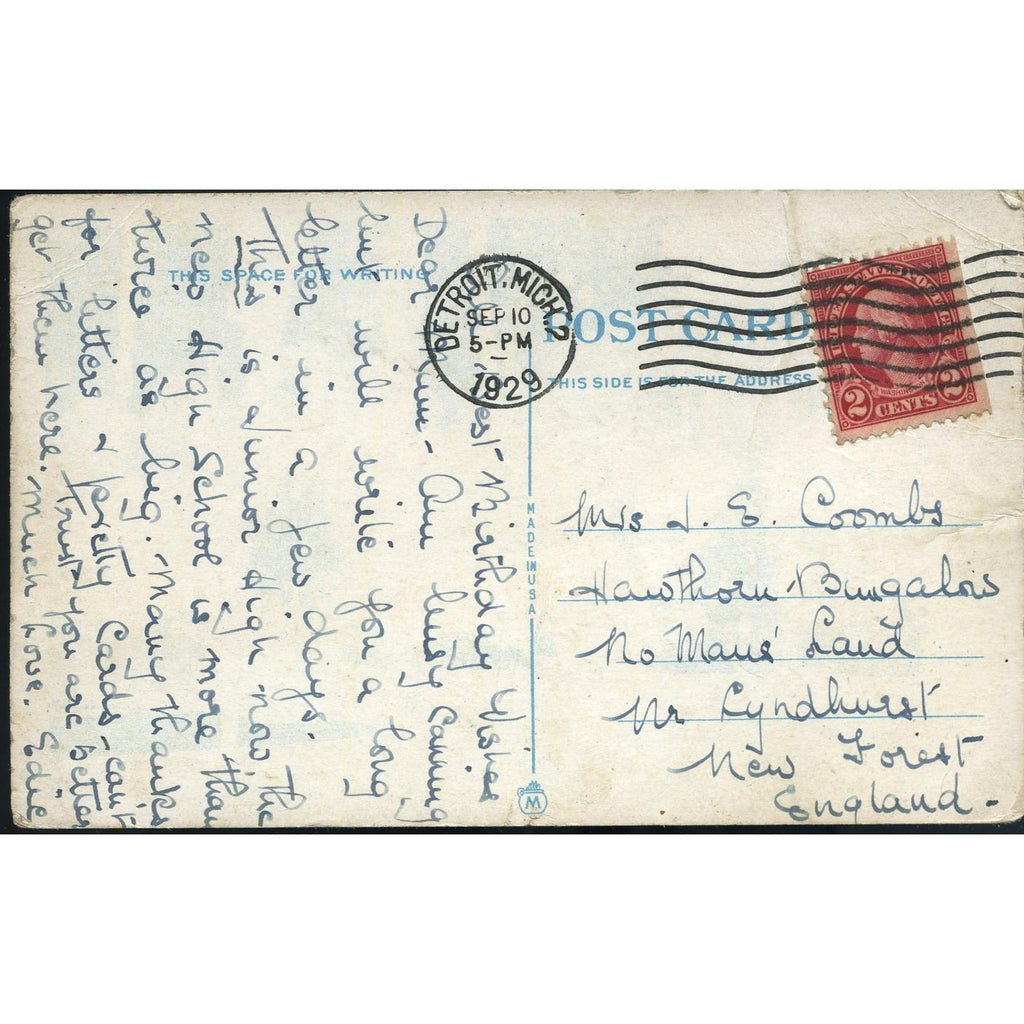 THIS SPACE FOR WRITING
POST CARD
THIS SIDE IS FOR THE ADDRESS
DETROIT, MICH. 2
SEP 10
5-PM
1929
2 CENTS 2
Best Birthday Wishes
Dear Mum - Am busy Canning
but will write you a long
letter in a few days.
This is Junior High now the
new High School is more than
twice as big. Many thanks
for letters & pretty Cards - can't
Trust you are better
get them here. Much Love. Edie
MADE IN USA
M
Mrs J. E. Coombs
Hawthorn Bungalow
No Mans' Land
Nr Lyndhurst
New Forest
England -